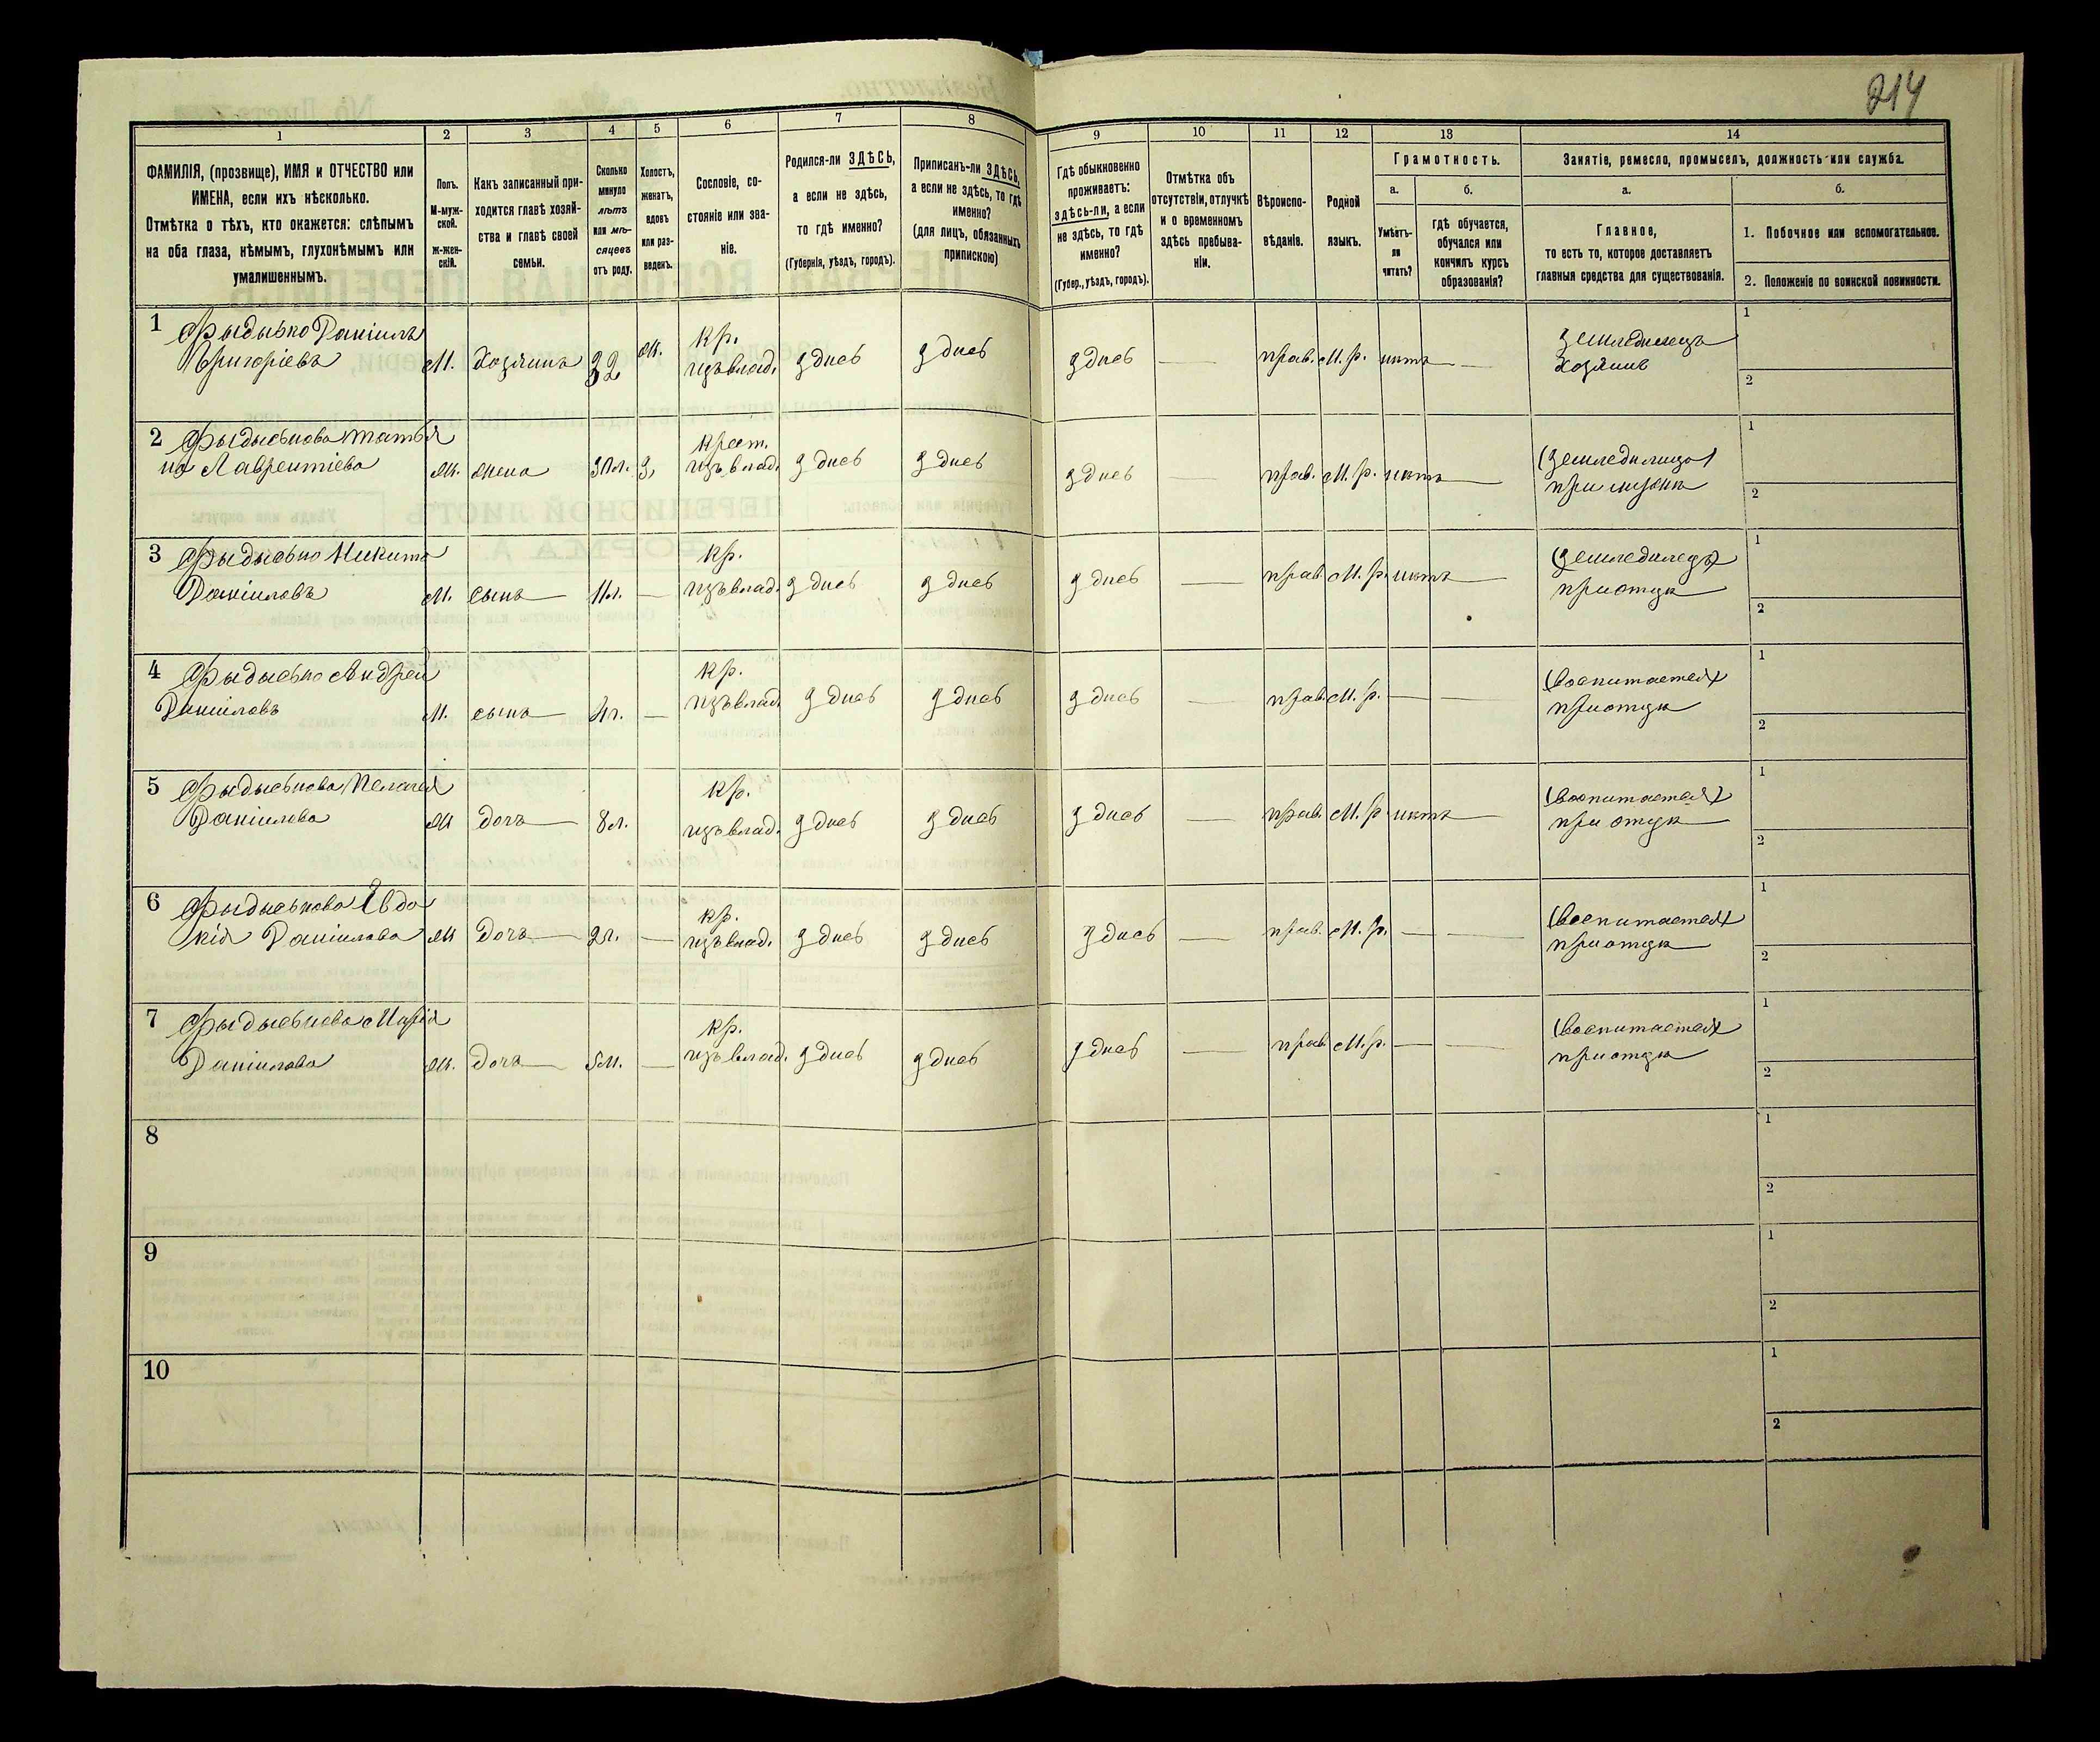 214
1
2
3
4
5
6
7
8
9
10
11
12
13
14
ФАМИЛІЯ, (прозвище), ИМЯ и ОТЧЕСТВО или
ИМЕНА, если ихъ нѣсколько.
Отмѣтка о тѣхъ, кто окажется: слѣпымъ
на оба глаза, нѣмымъ, глухонѣмымъ или
умалишеннымъ.
Полъ.
М-муж-
ской.
ж-жен-
скій.
Какъ записанный при-
ходится главѣ хозяй-
ства и главѣ своей
семьи.
Сколько
минуло
лѣтъ
или мѣ-
сяцевъ
отъ роду.
Холостъ,
женатъ,
вдовъ
или раз-
веденъ.
Сословіе, со-
стояніе или зва-
ніе.
Родился-ли ЗДѢСЬ,
а если не здѣсь,
то гдѣ именно?
(Губернія, уѣздъ, городъ).
Приписанъ-ли ЗДѢСЬ,
а если не здѣсь, то гдѣ
именно?
(для лицъ, обязанныхъ
припискою)
Гдѣ обыкновенно
проживаетъ:
здѣсь-ли, а если
не здѣсь, то гдѣ
именно?
(Губер., уѣздъ, городъ).
Отмѣтка объ
отсутствіи, отлучкѣ
и о временномъ
здѣсь пребыва-
ніи.
Вѣроиспо-
вѣданіе.
Родной
языкъ.
Грамотность.
а.
Умѣетъ-
ли
читать?
б.
Гдѣ обучается,
обучался или
кончилъ курсъ
образованія?
Занятіе, ремесло, промыселъ, должность или служба.
а.
Главное,
то есть то, которое доставляетъ
главныя средства для существованія.
б.
1. Побочное или вспомогательное.
2. Положеніе по воинской повинности.
1 Даніилъ
Григоріевъ М. Хозяинъ 32 ж. кр. изъ влад. здѣсь здѣсь здѣсь — прав. М. р. нѣтъ — земледѣлецъ хозяинъ 1 2
2 Татья
на Лаврентіева ж. жена 30 л. з. крест. изъ влад. здѣсь здѣсь здѣсь — прав. М. р. нѣтъ — (земледѣлица) при мужѣ 1 2
3 Никита
Даніиловъ М. сынъ 11 л. — кр. изъ влад. здѣсь здѣсь здѣсь — прав. М. р. нѣтъ — при отцѣ 1 2
4 Андрей
Даніиловъ М. сынъ 4 г. — кр. изъ влад. здѣсь здѣсь здѣсь — прав. М. р. — — (воспитается) при отцѣ 1 2
5 Пелагея
Даніилова ж дочь 8 л. кр. изъ влад. здѣсь здѣсь здѣсь — прав. М. р. нѣтъ — (воспитается) при отцѣ 1 2
6 Евдо
кія Даніилова ж дочь 2 г. — кр. изъ влад. здѣсь здѣсь здѣсь — прав. М. р. — — (воспитается) при отцѣ 1 2
7 Марія
Даніилова ж. дочь 5 м. — кр. изъ влад. здѣсь здѣсь здѣсь — прав. М. р. — — (воспитается) при отцѣ 1 2
8 1 2
9 1 2
10 1 2